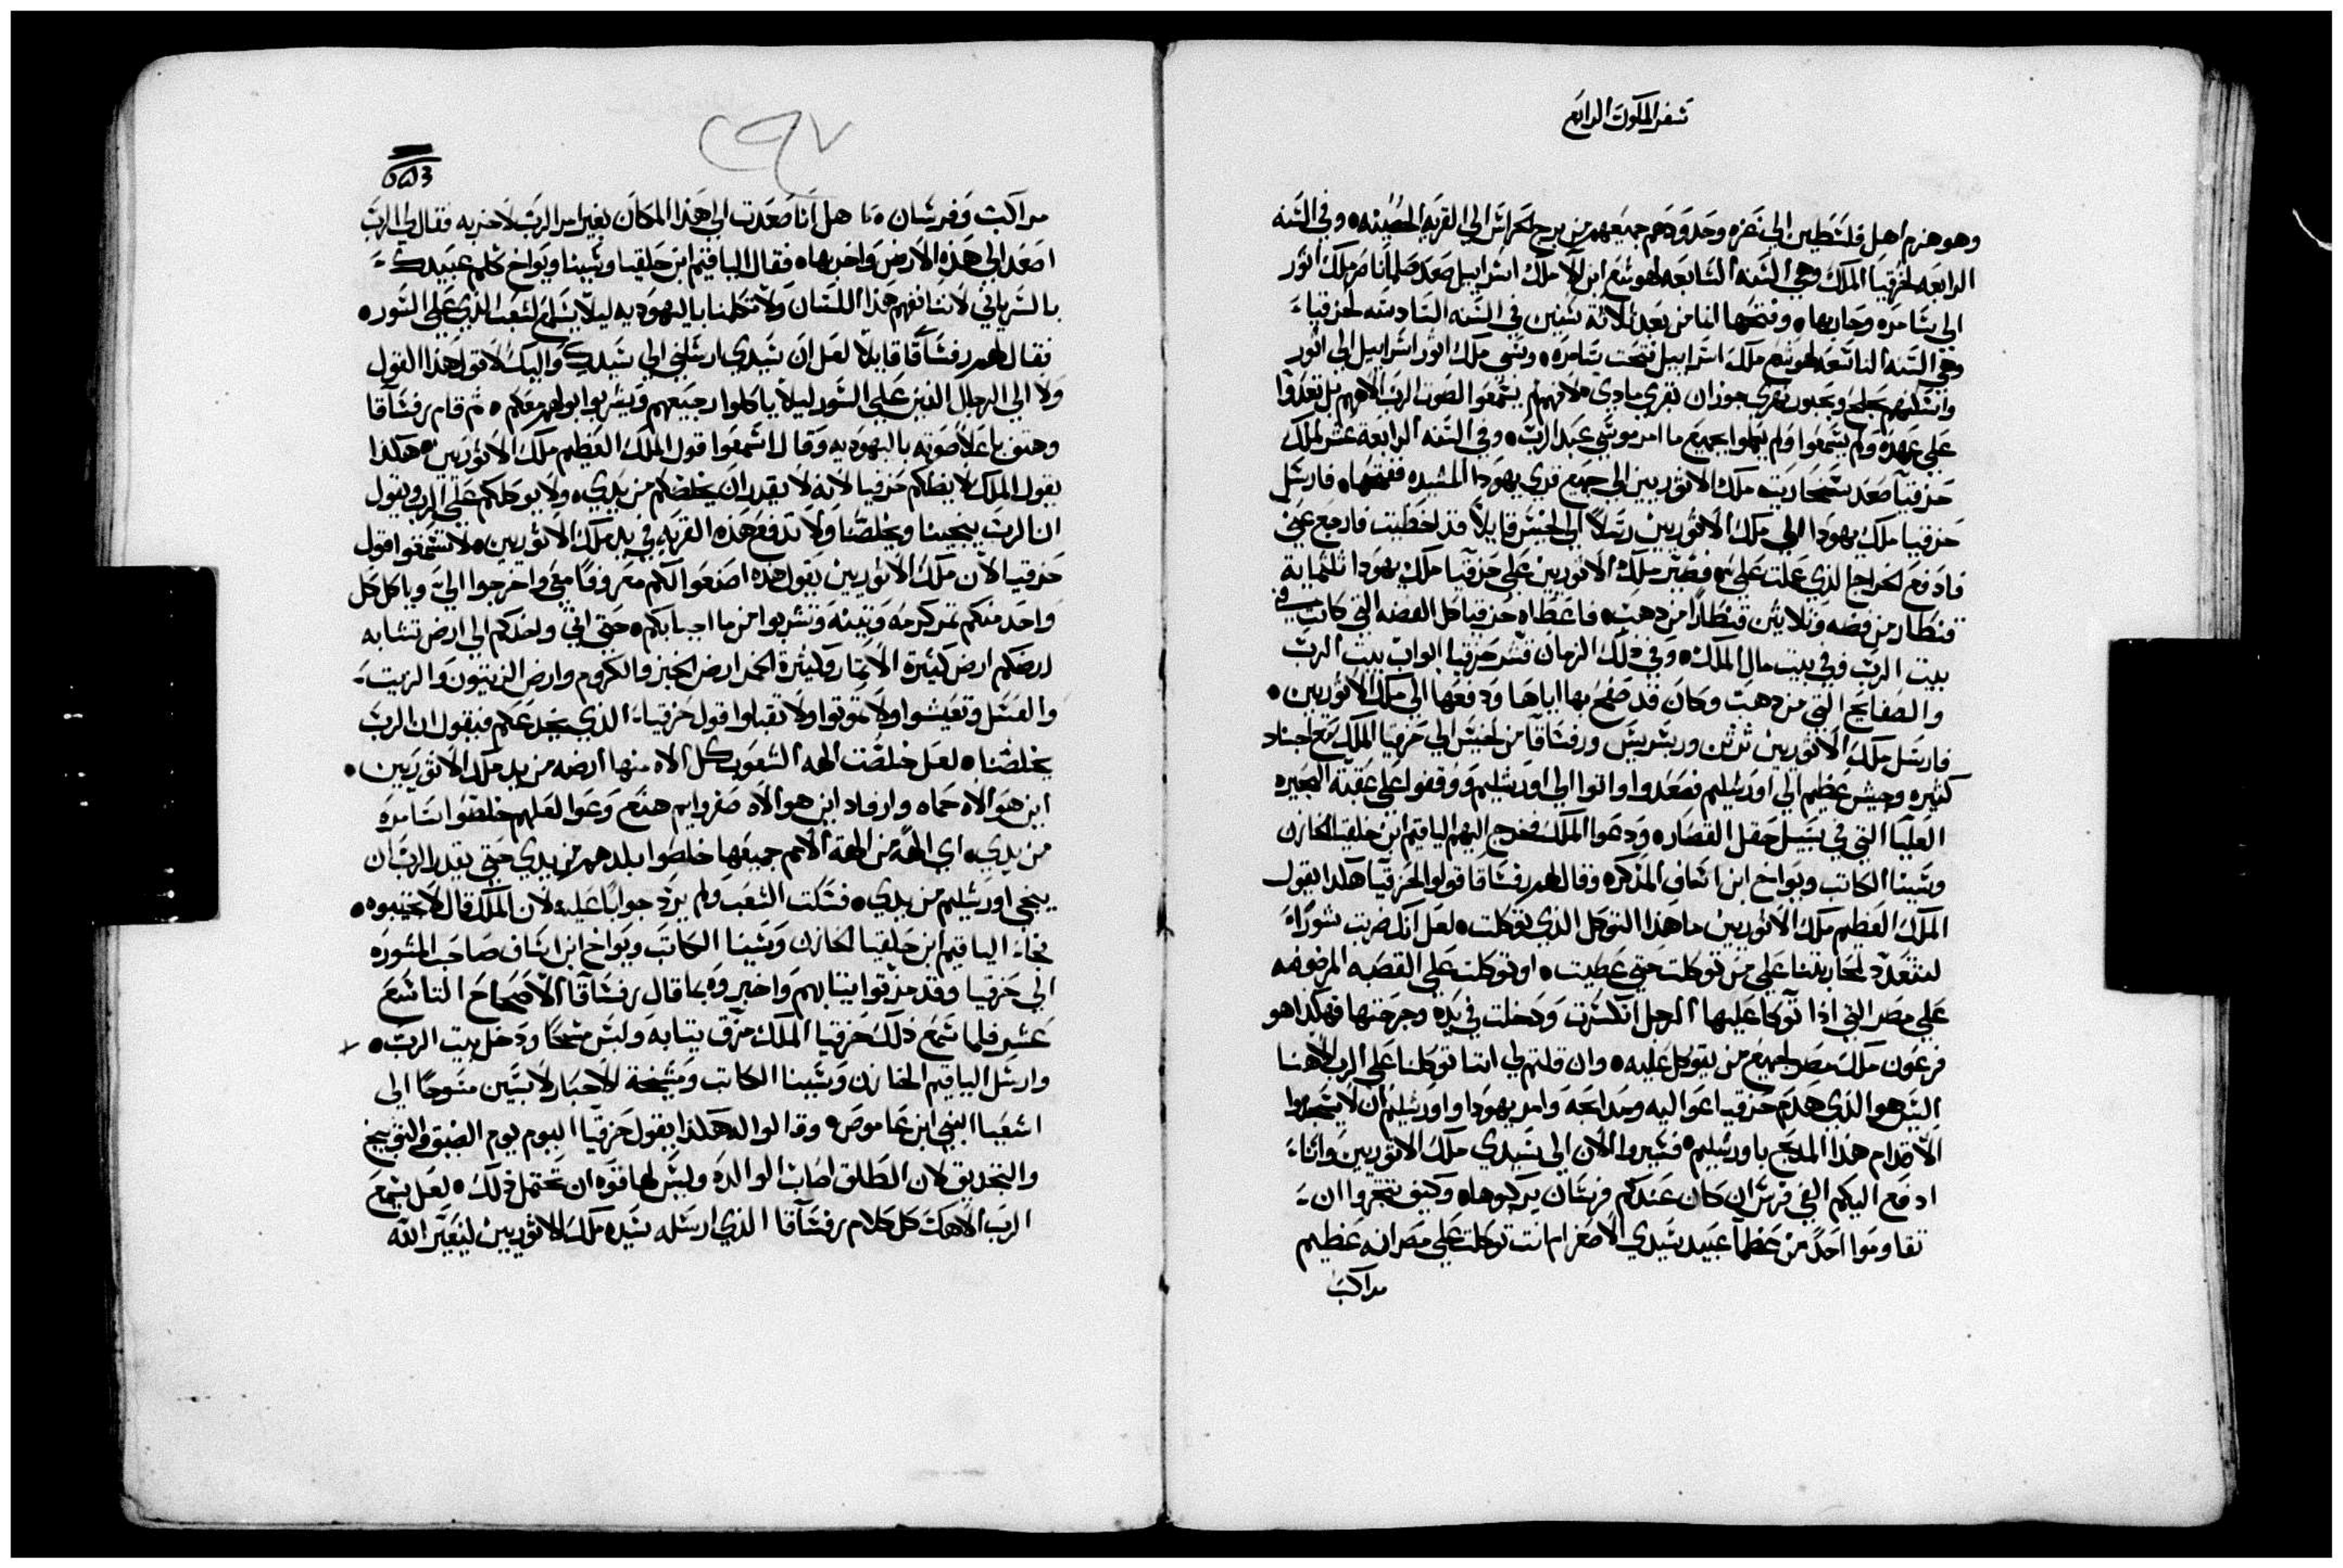 سفر الملوك الرابع
وهو هزم اهل فلسطين الي غزه وحدودهم جميعهم من برج الحراس الي القريه الحصينه ٥ وفي السنه
الرابعه لحزقيا الملك وهي السنه السابعه لهوشع ابن الا ملك اسراييل صعد صلماناصر ملك اثور
الي سامره وحاربها ٥ وفتحها لنا من بعد ثلاثة سنين في السنه السادسه لحزقياء
وهي السنه التاسعه لهوشع ملك اسراييل فتحت سامره ٥ وسبي ملك اثور اسراييل الي اثور
واسكنهم بحلح وبحبور بقري جوزان بقري مادي ملانهم لم يسمعوا الصوت الرب الاههم بل تعدوا
علي عهده ولم يسمعوا ولم يعملوا بجميع ما امر موسي عبد الرب ٥ وفي السنه الرابعة عشر لملك
حزقيا صعد سنحاريب ملك الاثوريين الي جميع قري يهودا المشيده ففتحها ٥ فارسل
حزقيا ملك يهودا الي ملك الاثوريين رسلاً الي لخيس قايلاً قد اخطيت فارجع عني
فادفع لخراج الذي عملت علي ٥ فصير ملك الاثوريين علي حزقيا ملك يهودا ثلثماية
قنطار من فضه وثلاثين قنطاراً من دهب ٥ فاعطاه حزقيا كل الفضه التي كانت في
بيت الرب وفي بيت مال الملك ٥ وفي ذلك الزمان قشر حزقيا ابواب بيت الرب
والصفايح التي من دهب وكان قد صفح بها اياها ودفعها الي ملك الاثوريين ٥
فارسل ملك الاثوريين ثرثن وربسريس ورفساقا من لخيس الي حزقيا الملك مع اجناد
كثيره وجيش عظيم الي اورشليم فصعدوا واتوا الي اورشليم ووقفوا علي عقبة البحيره
العليا التي في سبيل حقل القصار ٥ ودعوا الملك فخرج اليهم الياقيم ابن حلقيا الخازن
وشبينا الكاتب ويواخ ابن اساف المذكره وقال لهم رفساقا قولوا لحزقيا هكذا يقول
الملك العظيم ملك الاثوريين ما هذا التوكل الذي توكلت ٥ لعل انك ضربت شوراءً
لتتعدد لمحاربتنا علي من توكلت حتي عصيت ٥ او توكلت علي القصبه المرضوضه
علي مصر التي اذا توكا عليها الرجل انكسرت ودخلت في يده وجرحتها فهكذا هو
فرعون ملك مصر لجميع من يتوكل عليه ٥ وان قلتم لي اننا توكلنا علي الرب الاهنا
اليس هو الذي هدم حزقيا عواليه ومدابحه وامر يهودا واورشليم ان لا يسجدوا
الا قدام هذا المدبح باورشليم ٥ فسيروا الان الي سيدي ملك الاثوريين واناء
ادفع اليكم الفي فرس ان كان عندكم فرسان يركبوها ٥ وكيف تتجروا ان
تقاوموا احداً من عظما عبيد سيدي الاصغر ام انت توكلت علي مصر انه عظيم
مراكب
٢٩٧
مراكب وفرسان ٥ هل انا صعدت الي هذا المكان بغير امر الرب لاخربه فقال لي الرب
اصعد الي هذه الارض واخربها ٥ فقال الياقيم ابن حلقيا وشبينا ويواخ كلم عبيدك
بالسرياني لاننا نفهم هذا اللسان ولا تكلمنا باليهوديه ليلا يسمع الشعب الذي علي السور ٥
فقال لهم رفساقا قايلاً لعل ان سيدي ارسلني الي سيدك واليك لاقول هذا القول
ولا الي الرجال الذين علي السور ليلا ياكلوا رجيعهم ويشربوا بولهم معكم ٥ ثم قام رفساقا
وهتف باعلا صوته باليهوديه وقال اسمعوا قول الملك العظيم ملك الاثوريين ٥ هكذا
يقول الملك لا يطغكم حزقيا لانه لا يقدر ان يخلصكم من يدي ٥ ولا يوكلكم علي الرب ويقول
ان الرب ينجينا ويخلصنا ولا تدفع هذه القريه في يد ملك الاثوريين ٥ لا تسمعوا قول
حزقيا الان ملك الاثوريين يقول هذه اصنعوا لكم معروفاً معي واخرجوا الي وياكل كل
واحد منكم ثمر كرمه وتينه وتشربوا من ما اجبابكم ٥ حتي اتي واخدكم الي ارض تشابه
ارضكم ارض كثيرة الاثمار وكثيرة الخمر ارض الخبز والكروم وارض الزيتون والزيت
والعسل وتعيشوا ولا تموتوا ولا تقبلوا قول حزقيا الذي يخدعكم فيقول ان الرب
يخلصنا ٥ لعل خلصت الهة الشعوب كل الاه منها ارضه من يد ملك الاثوريين ٥
اين هو الاه حماه وارفاد اين هو الاه صفروايم هنع وعوا لعلهم خلصوا سامره
من يدي ٥ اي الهة من الهة الامم جميعها خلصوا بلدهم من يدي حتي يقدر الرب ان
ينجي اورشليم من يدي ٥ فسكت الشعب ولم يرد جواباً عليه لان الملك قال لا تجيبوه ٥
فجاء الياقيم ابن حلقيا الخازن وشبنا الكاتب ويواخ ابن اساف صاحب المشوره
الي حزقيا وقد مزقوا ثيابهم واخبروه بما قال رفساقا الاصحاح التاسع
عشر فلما سمع ذلك حزقيا الملك مزق ثيابه ولبس مسحاً ودخل بيت الرب ٥
وارسل الياقيم الخازن وشبينا الكاتب ومشيخة الاحبار لابسين مسوحاً الي
اشعيا النبي ابن عاموص ٥ وقالوا له هكذا يقول حزقيا اليوم يوم الضيق والتوبيخ
والتجديق لان الطلق اصاب الوالده وليس لها قوه ان تحتمل ذلك ٥ لعل يسمع
الرب الاهك كل كلام رفساقا الذي ارسله سيده ملك الاثوريين ليعير الله